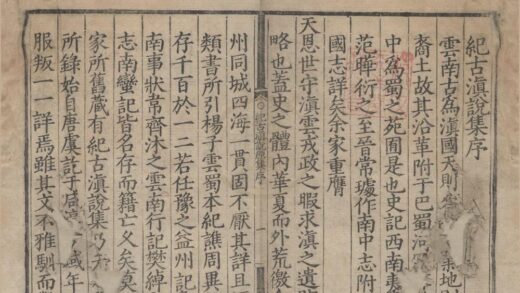 紀古滇說集序
雲南古為滇國天則地
裔土故其沿革附于巴蜀
中為蜀之苑囿是也史記西南夷
范曄衍之至晉常璩作南中志附
國志詳矣余家重膺
天恩世守滇雲戎政之暇求滇之遺
略也蓋史之體內華夏而外荒徼
紀古滇說集序
一
州同城四海一貫固不厭其詳且
類書所引楊子雲蜀本紀譙周異
存千百於一二若任豫之益州記
南事狀韋齊沐之雲南行記樊綽
志南蠻記皆名存而籍亡又矣莫
家所舊藏有紀古滇說集乃
所錄始自唐虞訖于年
服叛一一詳焉雖其文不雅馴而